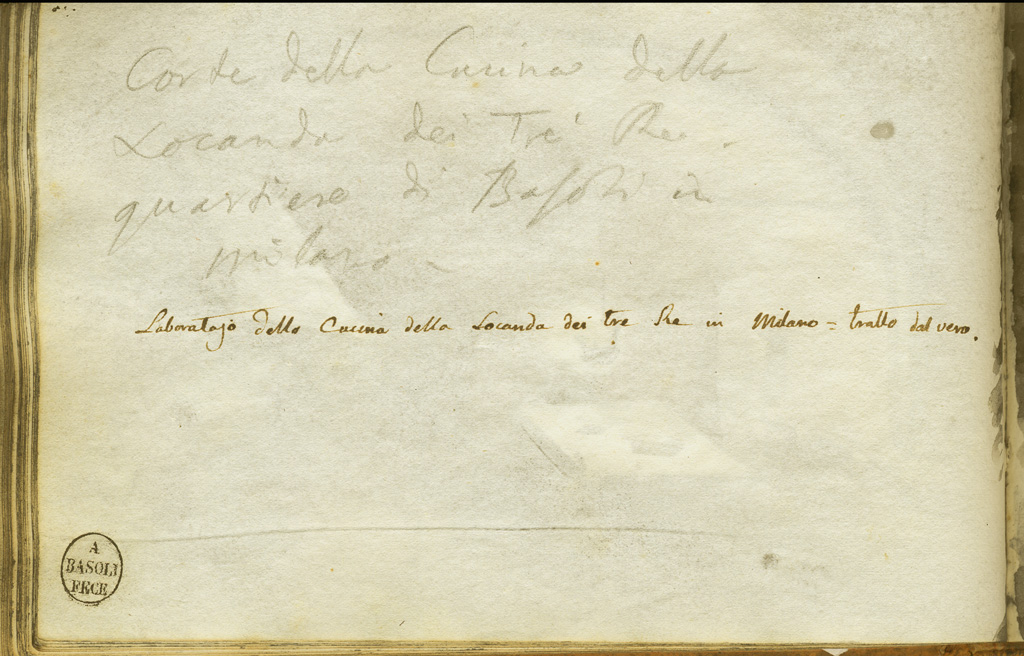 Corte della Cucina della
Locanda dei Tre Re.
quartiere di Basoli in
milano
Laboratajo della Cucina della Locanda dei tre Re in Milano = tratto dal vero.
A
BASOLI
FECE